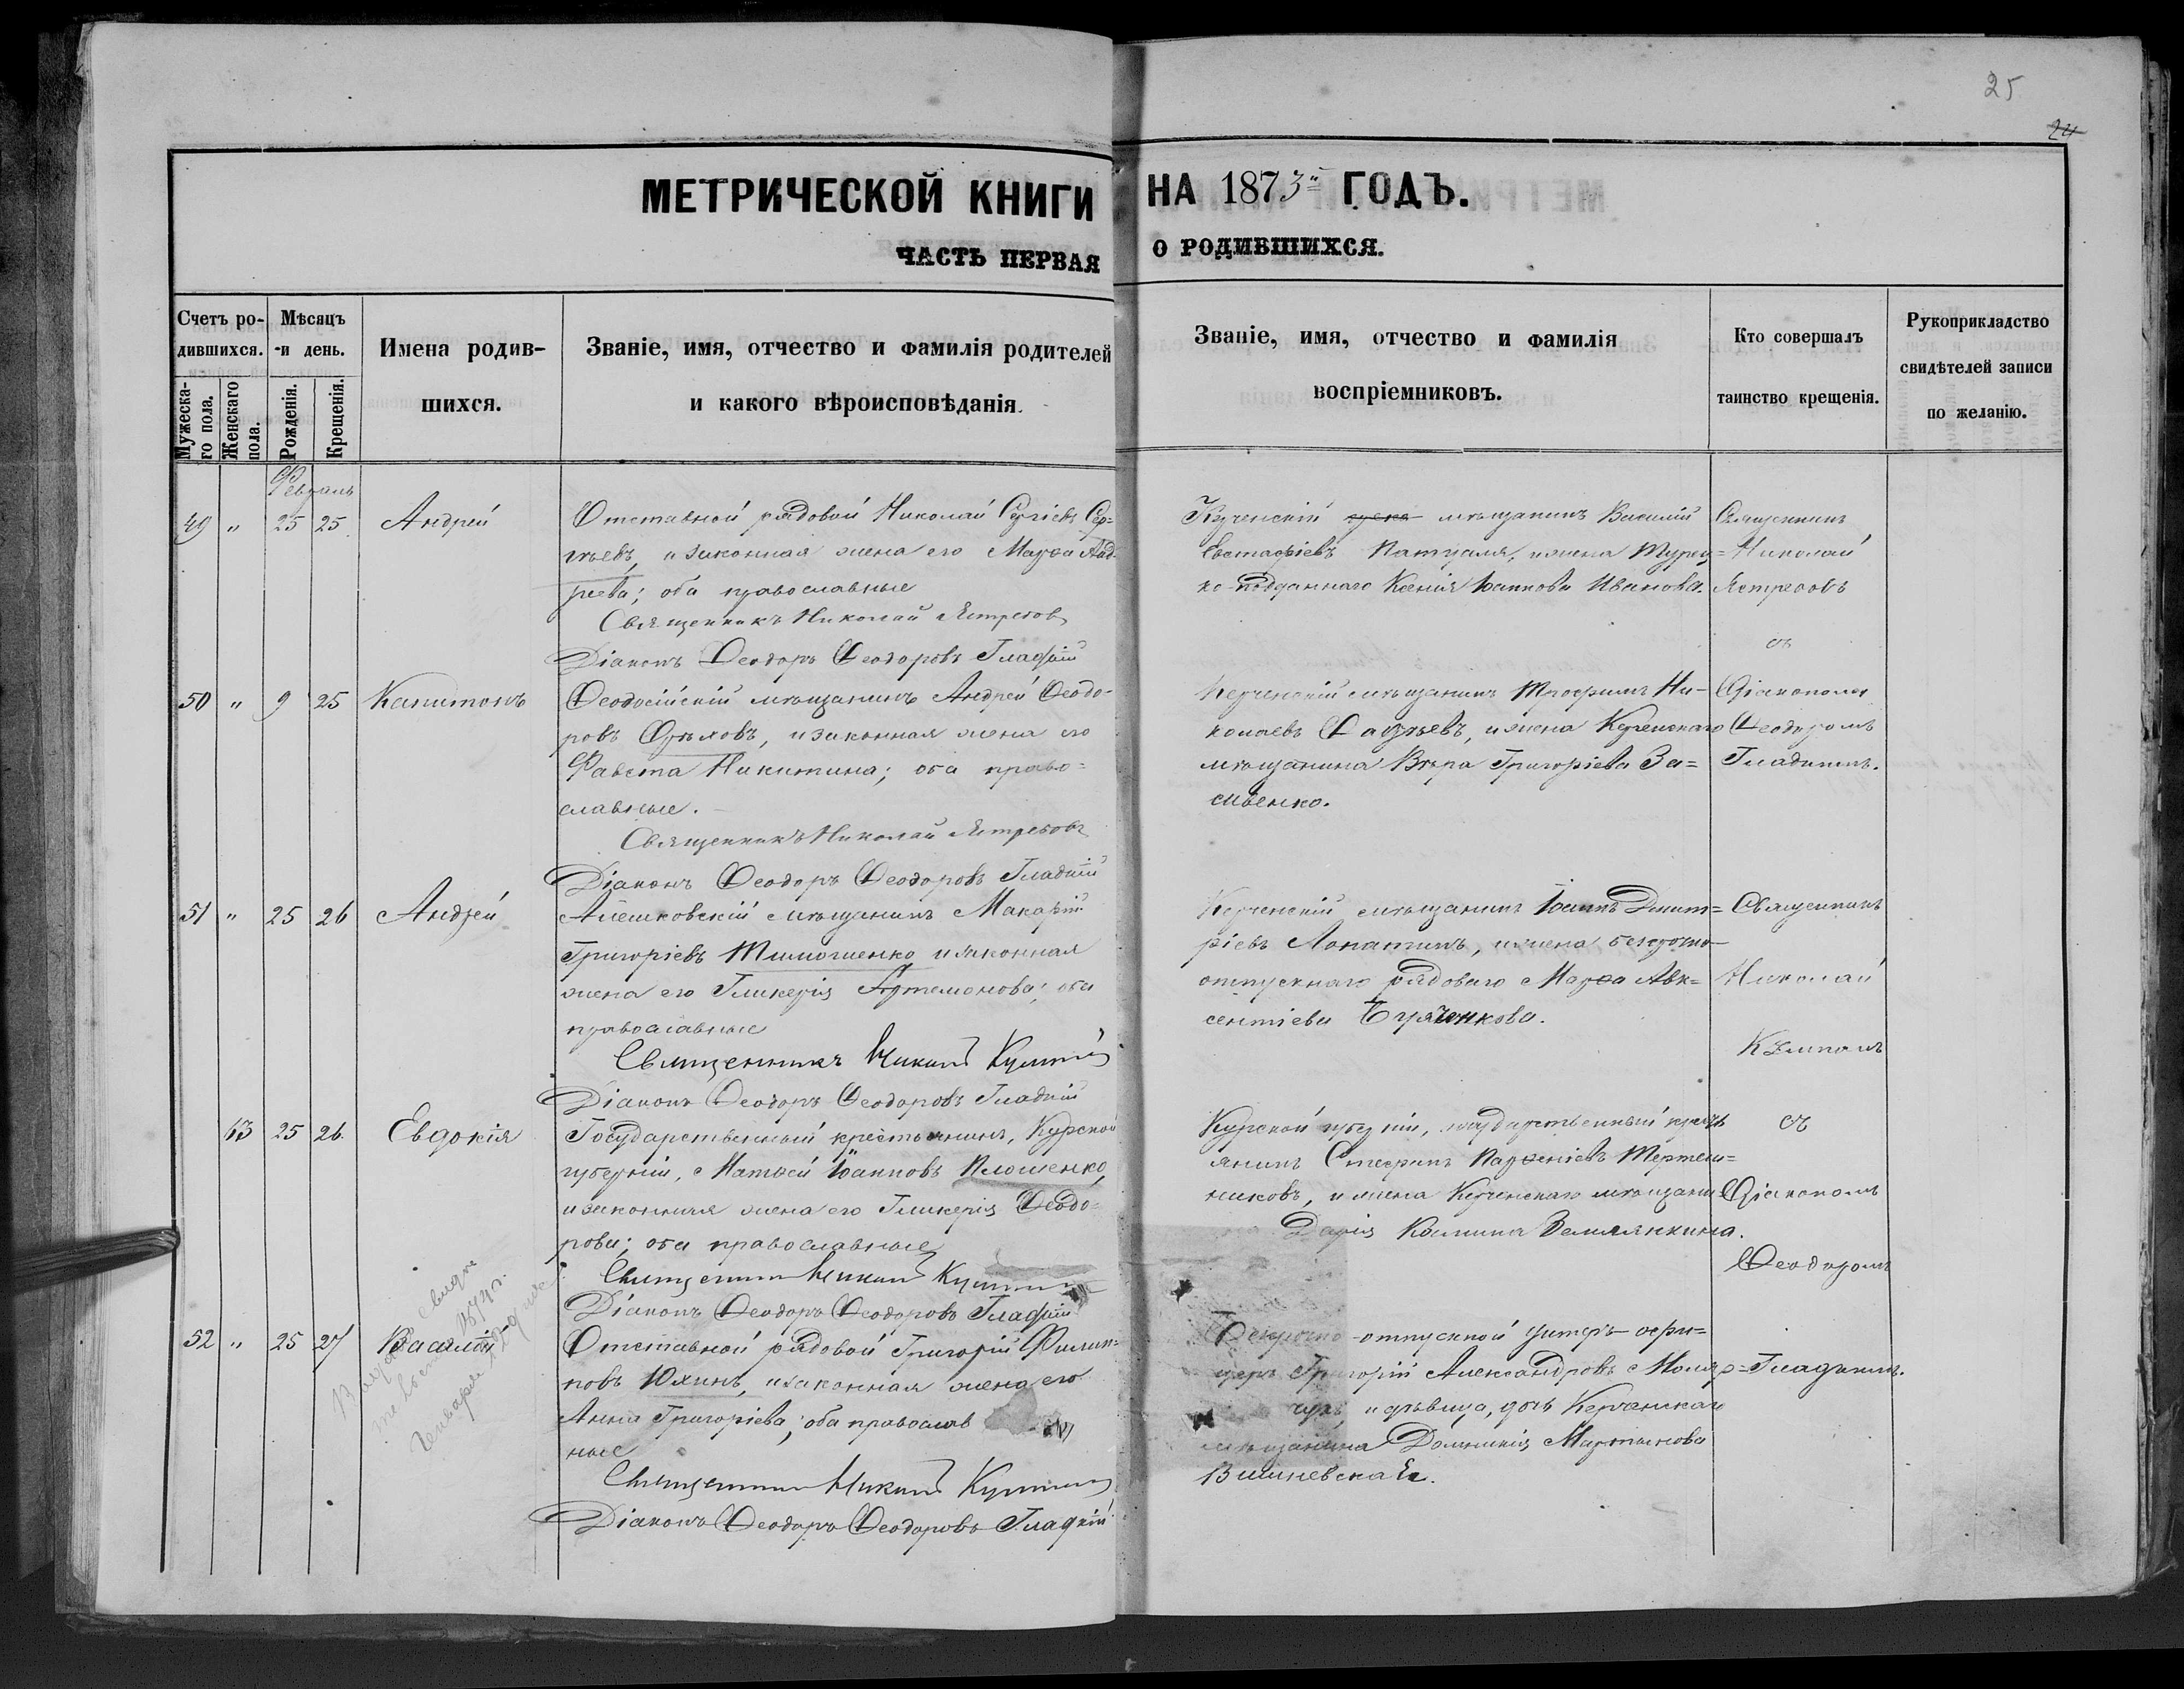 25
24
МЕТРИЧЕСКОЙ КНИГИ НА 1873й ГОДЪ.
ЧАСТЬ ПЕРВАЯ О РОДИВШИХСЯ.
Счетъ ро-
дившихся.
Мужеска-
го пола.
Женскаго
пола.
Мѣсяцъ
и день.
Рожденія.
Крещенія.
Имена родив-
шихся.
Званіе, имя, отчество и фамилія родителей
и какого вѣроисповѣданія.
Званіе, имя, отчество и фамилія
воспріемниковъ.
Кто совершалъ
таинство крещенія.
Рукоприкладство
свидѣтелей записи
по желанію.
Февраль
49 " 25 25 Андрей
Отставной рядовой Николай Сергіевъ Сер-
гѣевъ, и законная жена его Марѳа Анд-
реева; оба православные
Священникъ Николай Ястребовъ
Діаконъ Ѳеодоръ Ѳеодоровъ Гладкій
Керченскій мѣщанинъ Василій
Евстафіевъ, и жена Турец-
ко-подданнаго Ксенія Іоаннова Иванова.
Священникъ
Николай
Ястребовъ
съ
50 " 9 25 Капитонъ
Ѳеодосійскій мѣщанинъ Андрей Ѳеодо-
ровъ Орѣховъ, и законная жена его
Фавста Никитина; оба право-
славные.
Священникъ Николай Ястребовъ
Діаконъ Ѳеодоръ Ѳеодоровъ Гладкій
Керченскій мѣщанинъ Трофимъ Ни-
колаевъ Ѳадѣевъ, и жена Керченскаго
мѣщанина Вѣра Григоріева За-
сиѣнко.
Діакономъ
Ѳеодоромъ
Гладкимъ.
51 " 25 26 Андрей
Алешковскій мѣщанинъ Макарій
Григоріевъ Тимошенко и законная
жена его Гликерія Артемонова; оба
православные
Священникъ
Діаконъ Ѳеодоръ Ѳеодоровъ Гладкій
Керченскій мѣщанинъ Іоаннъ Димит-
ріевъ Лопатинъ, и жена безсрочно-
отпускнаго рядоваго Марѳа Авк-
сентіева
Священникъ
Николай
63 25 26 Евдокія
Государственный крестьянинъ, Курской
губерніи, Матѳей Іоанновъ Плошенко,
и законная жена его Гликерія Ѳеодо-
рова; оба православные
Священникъ
Діаконъ Ѳеодоръ Ѳеодоровъ Гладкій
Курской губерніи, государственный крестъ
янинъ Стефанъ Парѳеніевъ
никовъ, и жена Керченскаго мѣщанина
Дарія Козмина Землянкина.
съ
Діакономъ
Ѳеодоромъ
52 " 25 27 Василій
Отставной рядовой Григорій Филип-
повъ Юхинъ, и законная жена его
Анна Григоріева; оба православ
ные
Священникъ
Діаконъ Ѳеодоръ Ѳеодоровъ Гладкій
Безсрочно-отпускной унтеръ-офи-
церъ Григорій Александровъ
и дѣвица, дочь Керченскаго
мѣщанина Домникія Мартынова
Вишневская.
Гладкимъ.
Января